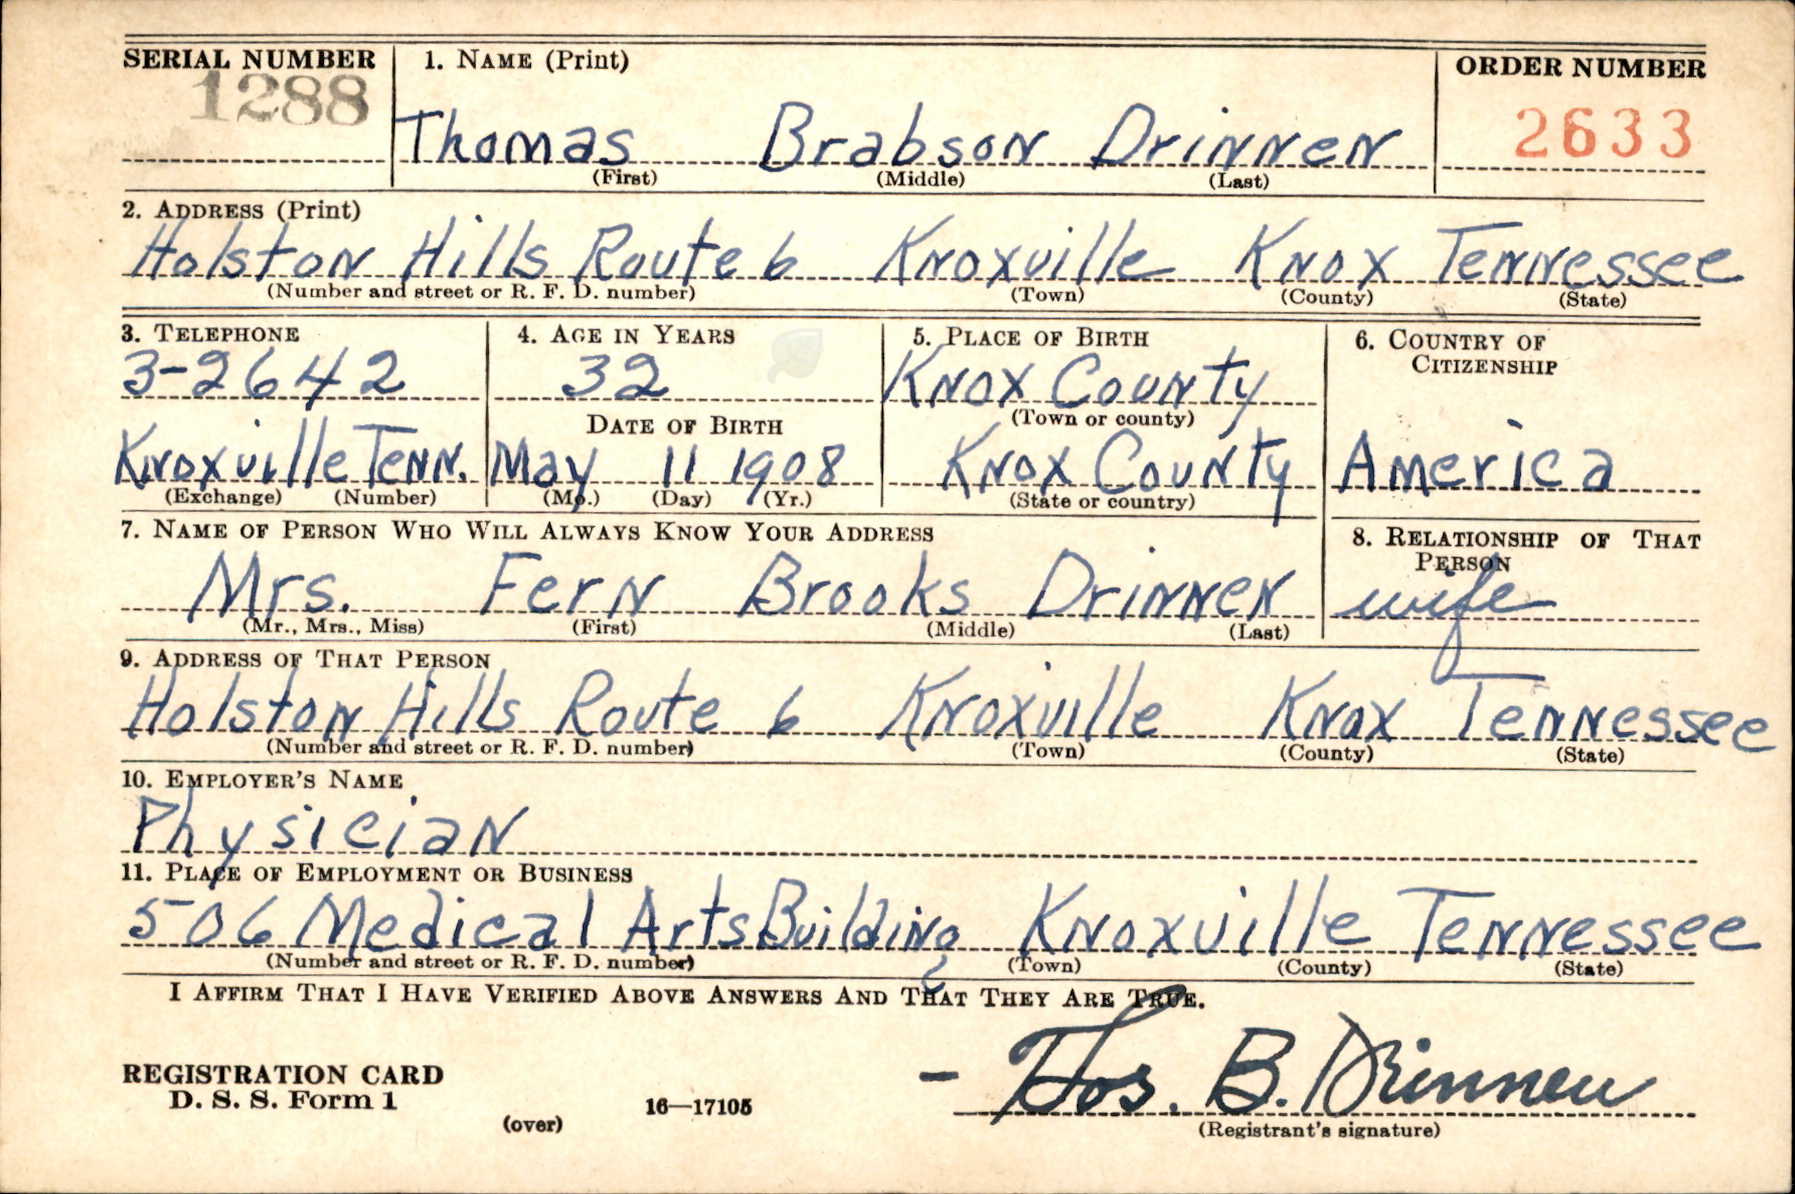 SERIAL NUMBER 1. NAME (Print) ORDER NUMBER
1288 2633
Thomas Brabson Drinnen
(First) (Middle) (Last)
2. ADDRESS (Print)
Holston Hills Route 6 Knoxville Knox Tennessee
(Number and street or R. F. D. number) (Town) (County) (State)
3. TELEPHONE 4. AGE IN YEARS 5. PLACE OF BIRTH 6. COUNTRY OF
CITIZENSHIP
3-2642 32 Knox County
DATE OF BIRTH (Town or county)
Knoxville Tenn. May 11 1908 Knox County America
(Exchange) (Number) (Mo.) (Day) (Yr.) (State or country)
7. NAME OF PERSON WHO WILL ALWAYS KNOW YOUR ADDRESS 8. RELATIONSHIP OF THAT
PERSON
Mrs. Fern Brooks Drinnen wife
(Mr., Mrs., Miss) (First) (Middle) (Last)
9. ADDRESS OF THAT PERSON
Holston Hills Route 6 Knoxville Knox Tennessee
(Number and street or R. F. D. number) (Town) (County) (State)
10. EMPLOYER'S NAME
Physician
11. PLACE OF EMPLOYMENT OR BUSINESS
506 Medical Arts Building Knoxville Tennessee
(Number and street or R. F. D. number) (Town) (County) (State)
I AFFIRM THAT I HAVE VERIFIED ABOVE ANSWERS AND THAT THEY ARE TRUE.
REGISTRATION CARD
D. S. S. Form 1 16—17105 – Thos. B. Drinnen
(over) (Registrant's signature)